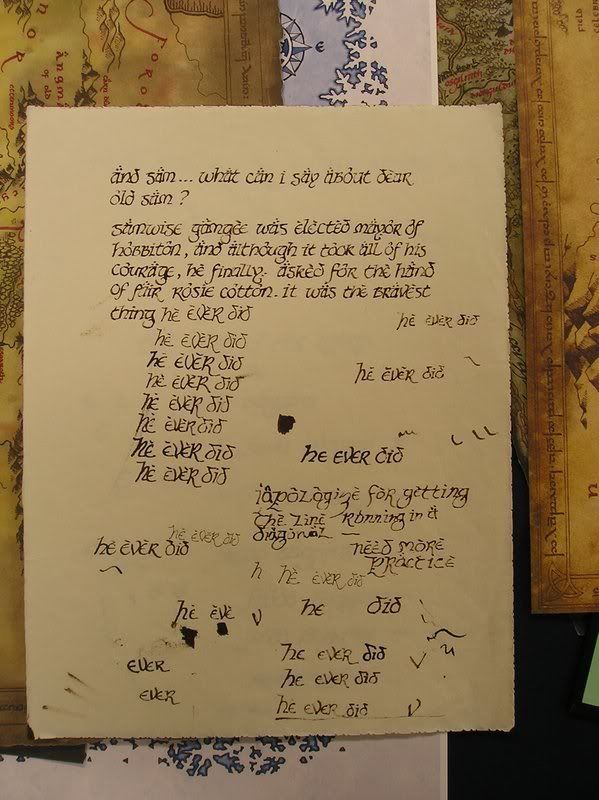 and sam... what can i say about dear
old sam?
samwise gamgee was elected mayor of
hobbiton, and although it took all of his
courage, he finally- asked for the hand
of fair rosie cotton. it was the bravest
thing he ever did
he ever did
he ever did
he ever did
he ever did
he ever did
he ever did
he ever did
he ever did
he ever did
he ever did
he ever did
i apologize for getting
the line running in a
diagonal —
need more
practice
he ever did
he ever did
h he ever did
he eve v
he did
ever
ever
he ever did
he ever did
he ever did v
E